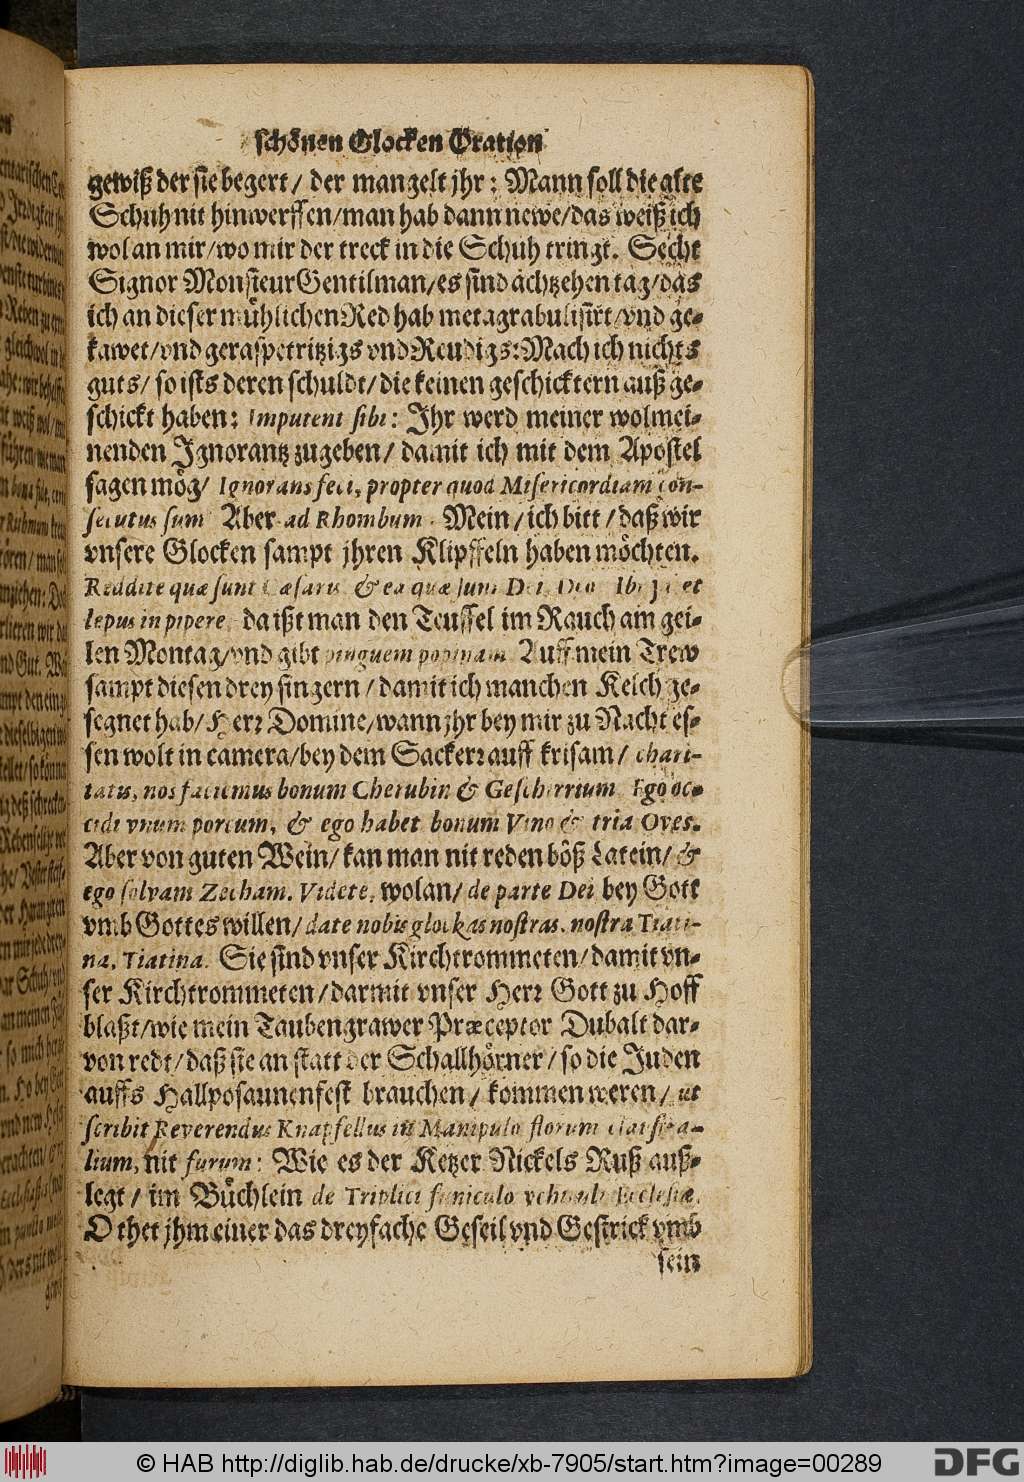 schönen Glocken Oration
gewiß der sie begert / der mangelt jhr : Mann soll die alte
Schuh nit hinwerffen / man hab dann newe / das weiß ich
wol an mir / wo mir der treck in die Schuh tringt. Secht
Signor Monsieur Gentilman / es sind achtzehen tag / das
ich an dieser mühlichen Red hab metagrabulisirt / vnd ge-
kawet / vnd geraspetritzigs vnd Reudigs : Mach ich nichts
guts / so ists deren schuldt / die keinen geschicktern auß ge-
schickt haben : Imputent sibi : Ihr werd meiner wolmei-
nenden Ignorantz zugeben / damit ich mit dem Apostel
sagen mög / Ignorans feci, propter quod Misericordiam con-
secutus sum Aber ad Rhombum. Mein / ich bitt / daß wir
vnsere Glocken sampt jhren Klipffeln haben möchten.
Reddite quæ sunt Cæsaris & ea quæ sunt Dei, et
lepus in pipere, da ißt man den Teuffel im Rauch am gei-
len Montag / vnd gibt pinguem popinam Auff mein Trew
sampt diesen drey fingern / damit ich manchen Kelch ge-
segnet hab / Herr Domine / wann jhr bey mir zu Nacht es-
sen wolt in camera / bey dem Sackerr auff krisam / chari-
tatis, nos facimus bonum Cherubin & Gescherrium Ego oc-
cidi vnum porcum, & ego habet bonum Vino & tria Oves.
Aber von guten Wein / kan man nit reden böß Latein / &
ego solvam Zecham. Videte, wolan / de parte Dei bey Gott
vmb Gottes willen / date nobis glockas nostras, nostra Tiati-
na, Tiatina. Sie sind vnser Kirchtrommeten / damit vn-
ser Kirchtrommeten / darmit vnser Herr Gott zu Hoff
blaßt / wie mein Taubengrawer Præceptor Dubalt dar-
von redt / daß sie an statt der Schallhörner / so die Juden
auffs Hallposaunenfest brauchen / kommen weren / ut
scribit Reverendus Knapfellus in Manipulo florum
lium, nit furum : Wie es der Ketzer Nickels Ruß auß-
legt / im Büchlein de Triplici funiculo Ecclesiæ.
O thet jhm einer das dreyfache Geseil vnd Gestrick vmb
sein
© HAB http://diglib.hab.de/drucke/xb-7905/start.htm?image=00289
DFG